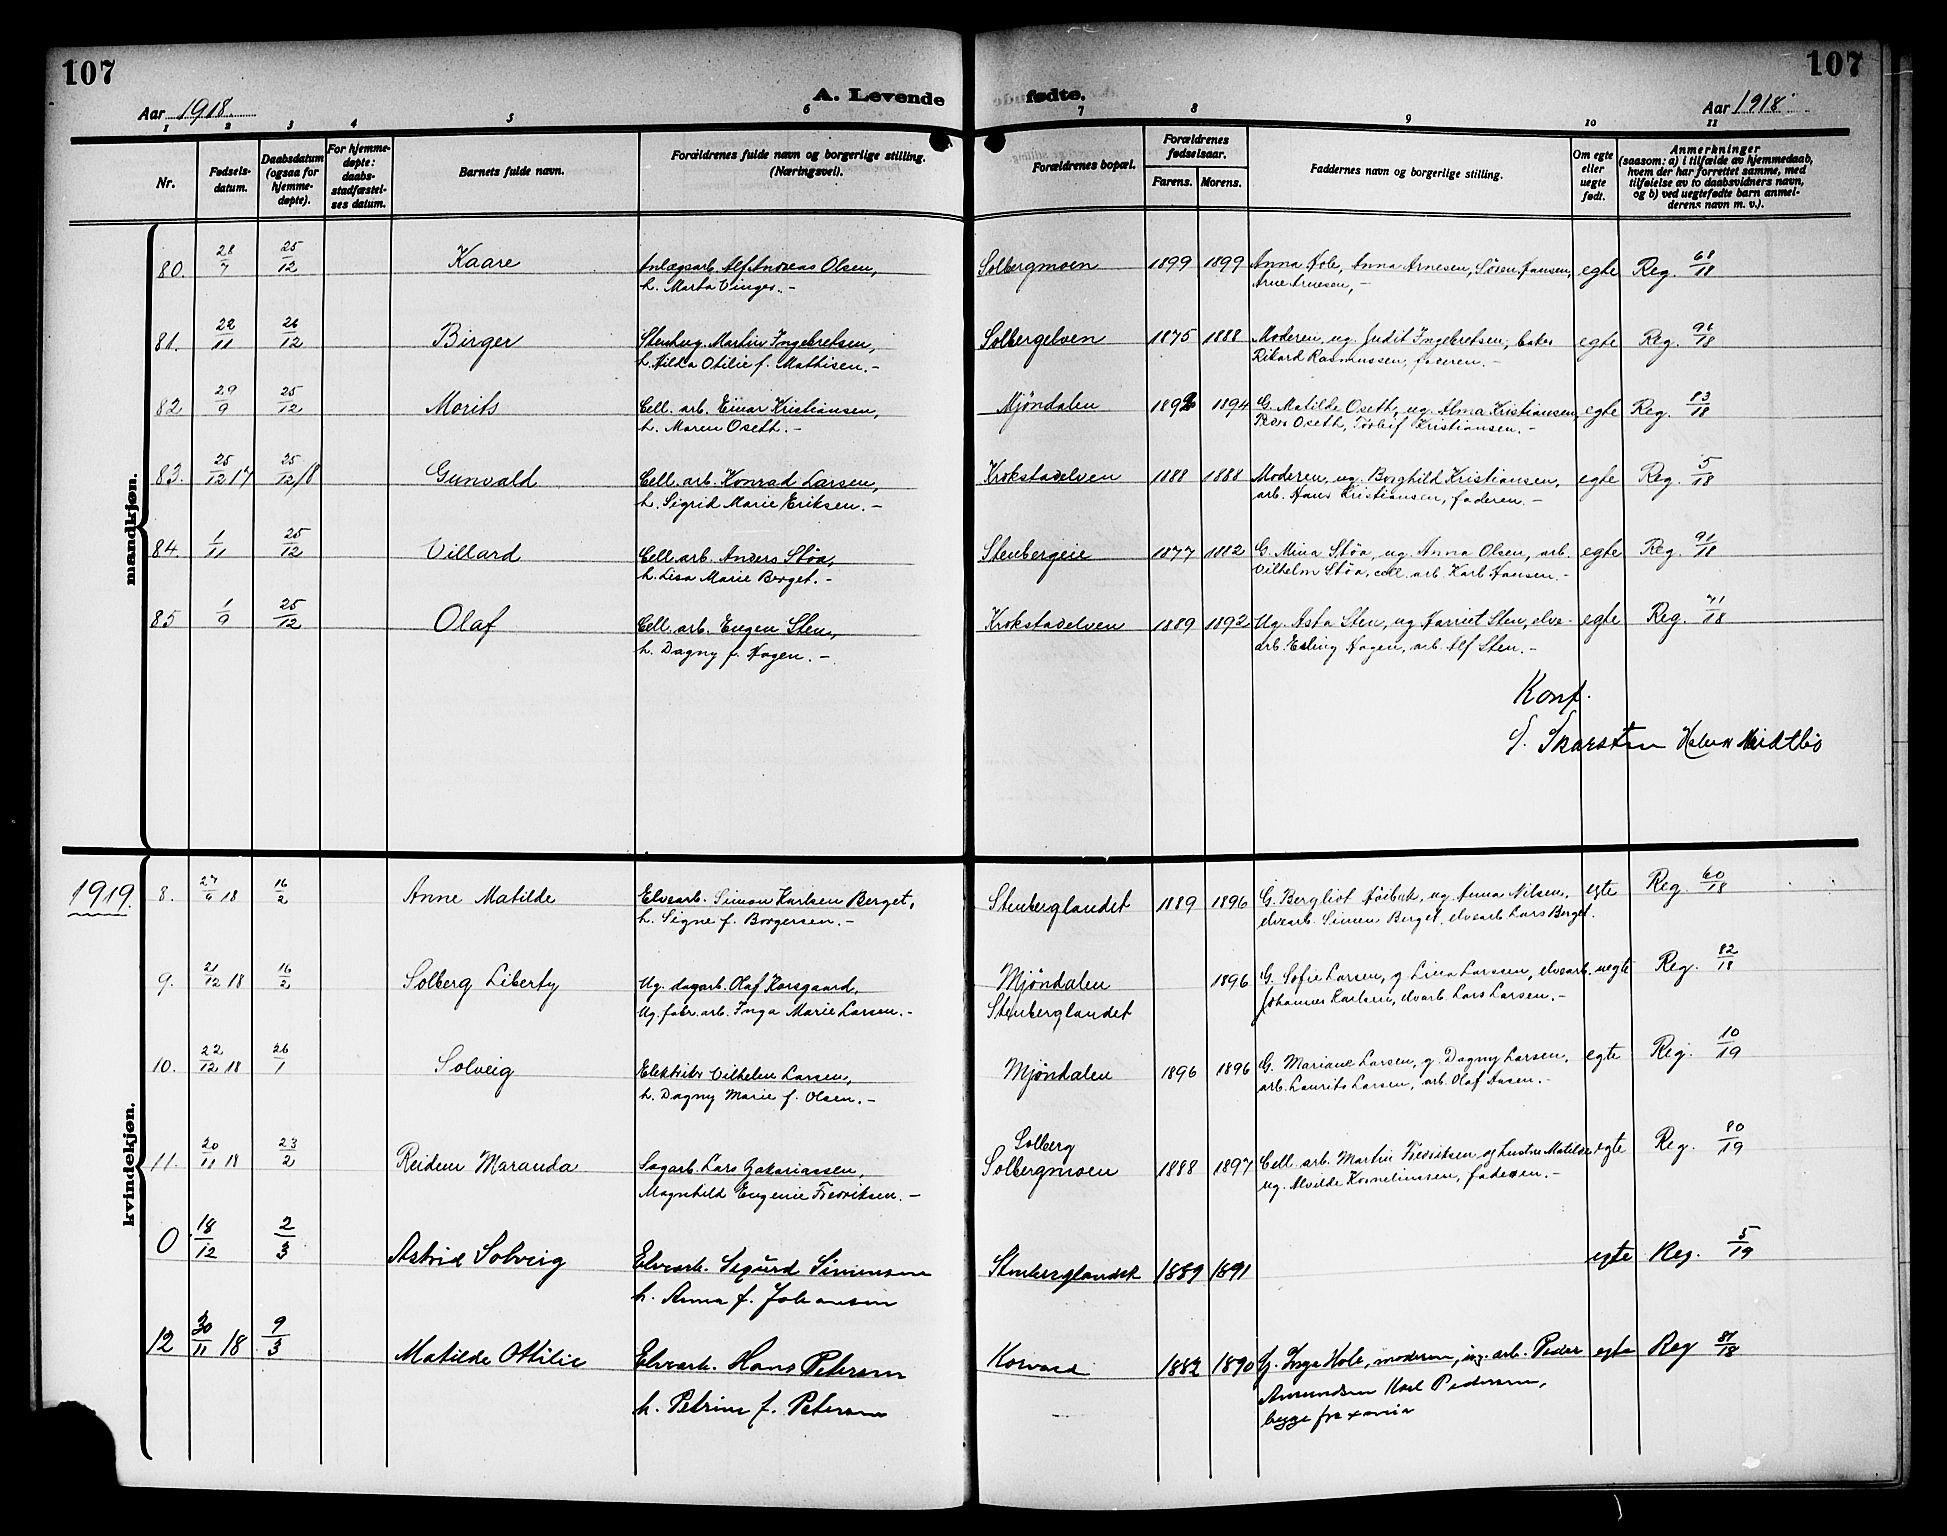 107
107
Aar 1918.
A. Levende
fødte.
Aar 1918
1 2 3 4 5 6 7 8 9 10 11
Nr.
Fødsels-
datum.
Daabsdatum
(ogsaa for
hjemme-
døpte).
For hjemme-
døpte:
daabs-
stadfæstel-
ses datum.
Barnets fulde navn.
Forældrenes fulde navn og borgerlige stilling.
(Næringsvei).
Forældrenes bopæl.
Forældrenes
fødselsaar.
Farens. Morens.
Faddernes navn og borgerlige stilling.
Om egte
eller
uegte
født.
Anmerkninger
(saasom: a) i tilfælde av hjemmedaab,
hvem der har forrettet samme, med
tilføielse av to daabsvidners navn,
og b) ved uegtefødte barn anmel-
derens navn m. v.).
mandkjøn.
80. 28/7 25/12 Kaare Anlægsarb. Alf Andreas Olsen, Solbergmoen 1899 1899 Anna Hole, Anna Arnesen, Sören Hansen, egte Reg. 68/18
h. Marta Vinger. - Arne Arnesen, -
81. 22/11 26/12 Birger Stenhug. Martin Ingebretsen, Solbergelven 1875 1888 Moderen, ug. Judit Ingebretsen, baker egte Reg. 96/18
h. Hilda Otilie f. Mathisen. - Rikard Rasmussen, faderen. -
82 29/9 25/12 Morits Cell. arb. Einar Kristiansen, Mjöndalen 1892 1894 G. Matilde Oseth, ug. Alma Kristiansen, egte Reg. 83/18
h. Maren Oseth. - Peder Oseth, Torleif Kristiansen. -
83. 25/12 17 25/12/18 Gunvald Cell. arb. Konrad Larsen, Krokstadelven 1888 1888 Moderen, ug. Borghild Kristiansen, egte Reg. 5/18
h. Sigrid Marie Eriksen. - arb. Hans Kristiansen, faderen. -
84. 1/11 25/12 Villard Cell. arb. Anders Støa, Stenbergeie 1877 1882 G. Mina Støa, ug. Anna Olsen, arb. egte Reg. 91/18
h. Lisa Marie Berget. - Vilhelm Støa, cell. arb. Karl Hansen. -
85 1/9 25/12 Olaf Cell. arb. Eugen Sten, Krokstadelven 1889 1892 Ug. Asta Sten, ug Harriet Sten, elve- egte Reg. 71/18
h. Dagny f. Hagen. - arb. Erling Hagen, arb. Alf Sten. -
Konf.
S. Skarsten Halvor Midtbö
1919.
kvindekjøn.
8. 27/6 18 16/2 Anne Matilde Elvearb. Simon Karlsen Berget, Stenberglandet 1889 1896 G. Bergliot Höibak, ug Anna Nilsen, egte Reg. 60/18
h. Signe f. Borgersen. - elvearb. Simen Berget, elvearb Lars Berget.
9. 21/12 18 16/2 Solberg Liberty Ug. dagarb. Olaf Korsgaard, Mjöndalen 1896 G. Sofie Larsen, g Lina Larsen, elvearb. uegte Reg. 82/18
Ug. fabr. arb. Inga Marie Larsen. - Stenberglandet Johannes Karlsen, elvarb. Lars Larsen. -
10. 22/12 18 26/1 Solveig Elektriker Vilhelm Larsen, Mjöndalen 1896 1896 G. Mariane Larsen, g. Dagny Larsen, egte Reg. 10/19
h. Dagny Marie f. Olsen. - arb. Laurits Larsen, arb. Olaf Aasen. -
11. 20/11 18 23/2 Reidun Maranda Sagarb. Lars Zakariassen, Solberg Solbergmoen 1888 1897 Cell. arb. Martin Fredriksen og hustru Matilde, egte Reg. 80/19
Magnhild Eugenie Fredriksen. - ug. Alvilde Korneliussen, faderen. -
0 18/12 2/3 Astrid Solveig Elvearb. Sigurd Simensen Stenberglandet 1889 1891 egte Reg. 5/19
h. Anna f. Johansen
12 30/11 18 9/3 Matilde Ottilie Elvearb. Hans Petersen Korvald 1882 1890 G. Inga Hole, moderen, ug. arb. Peder egte Reg 87/18
h. Petrine f. Petersen Amundsen Karl Pedersen,
begge fra xania